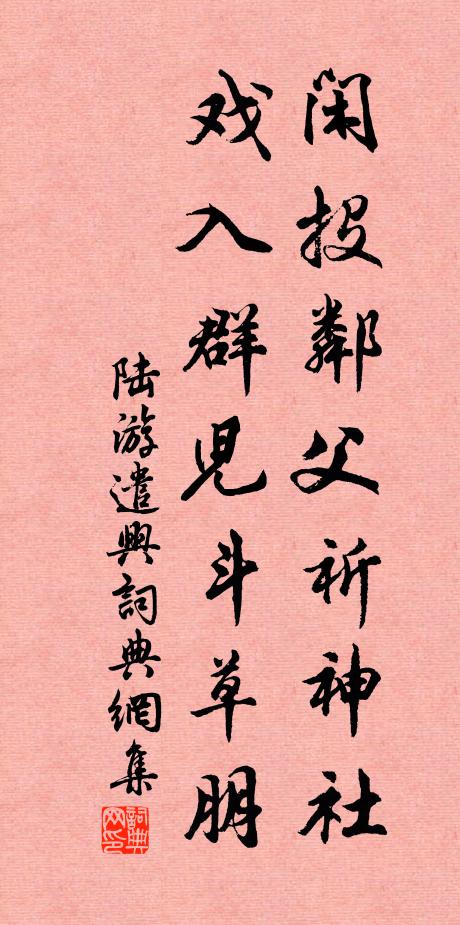 闲投鄰父祈神社
戏入群児斗草朋
陆游遣興詞典網集
詞典网印